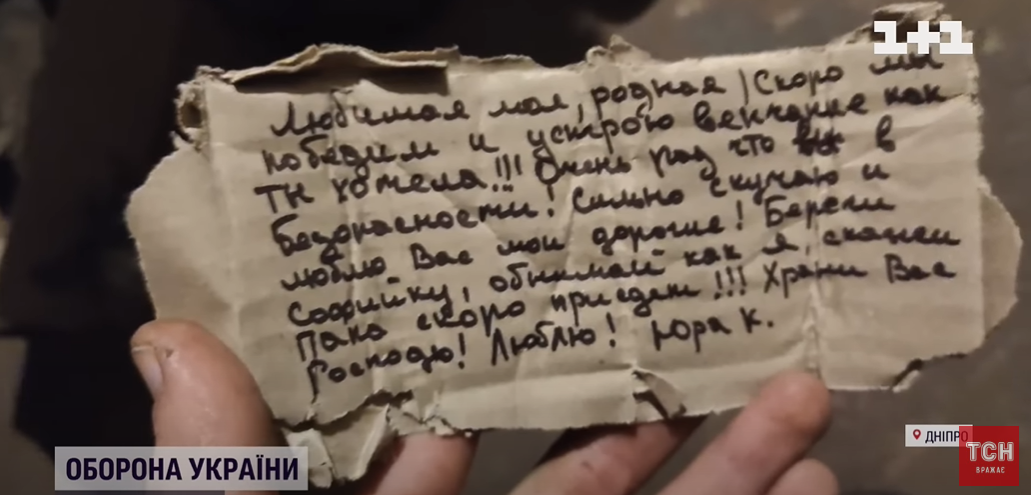 1+1
Любимая моя, родная! Скоро мы
победим и устрою венчание как
ты хотела!!! Очень рад что в
безопасности! Сильно скучаю и
люблю Вас мои дорогие! Береги
Софийку, обнимай как я, скажи
папа скоро приедет!!! Храни Вас
Господь! Люблю! Юра К.
ДНІПРО
ТСН
ВРАЖАЄ
ОБОРОНА УКРАЇНИ